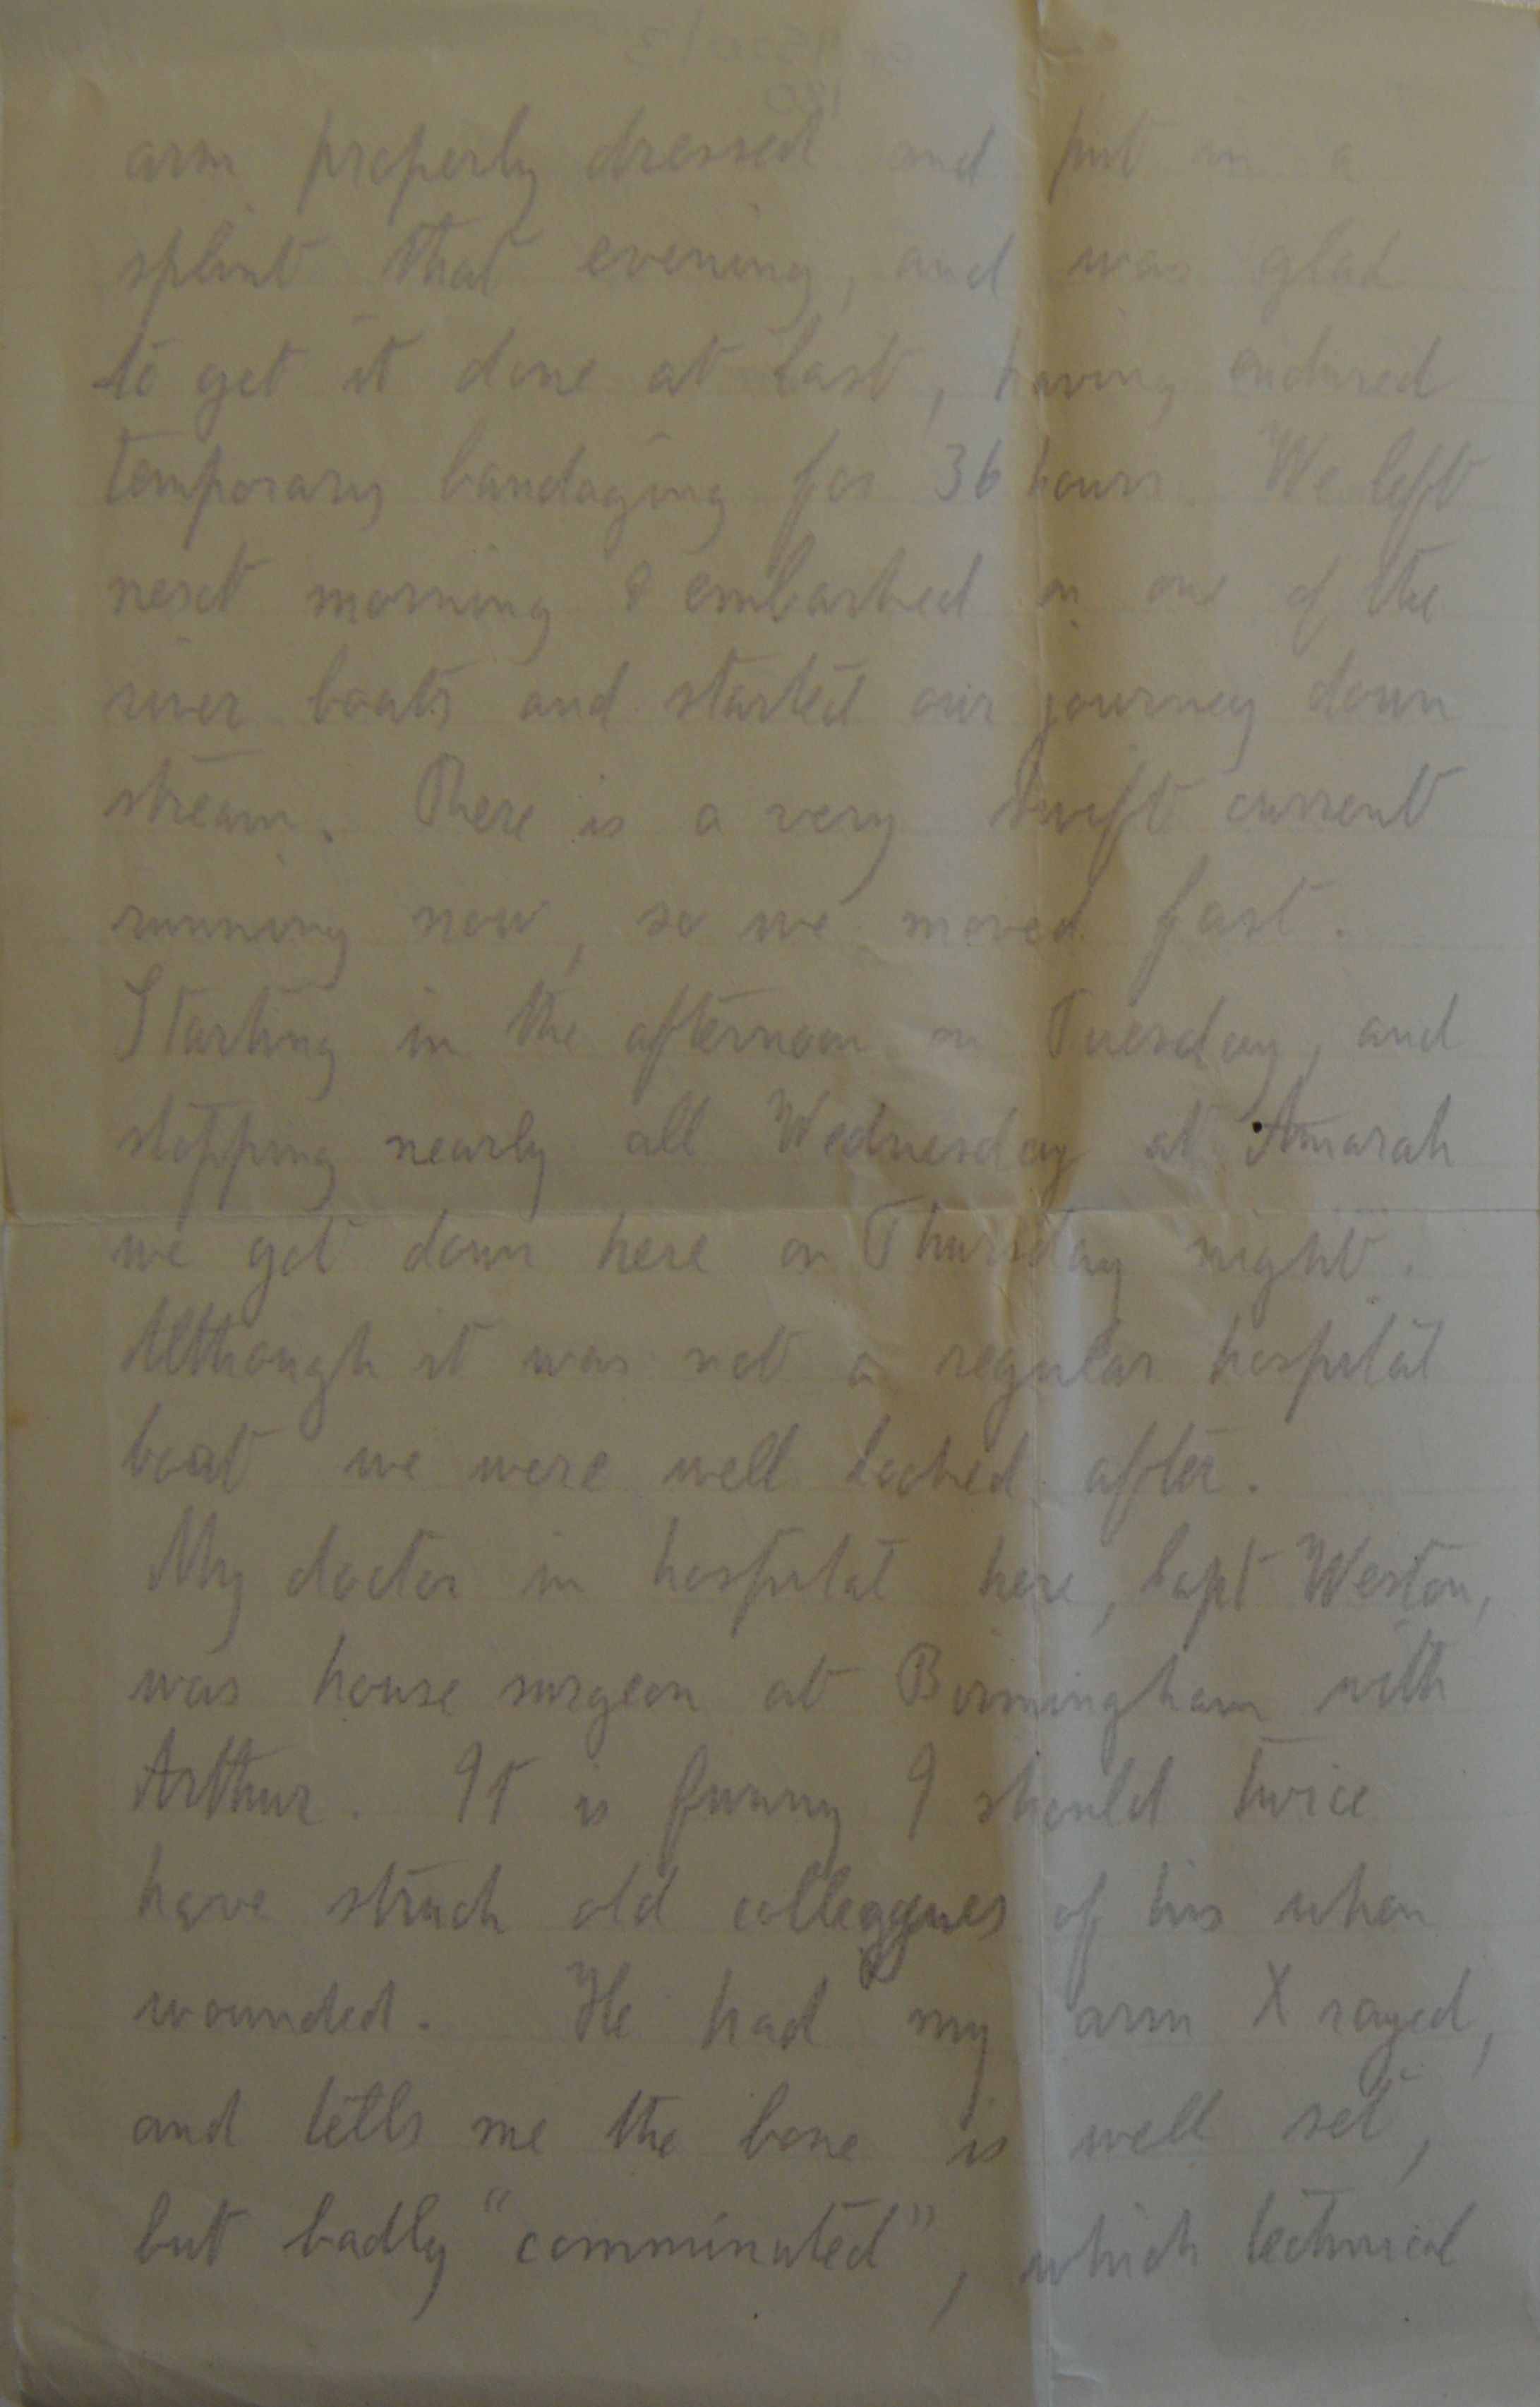 arm properly dressed and put in a
splint that evening, and was glad
to get it done at last, having endured
temporary bandaging for 36 hours. We left
next morning & embarked on one of the
river boats and started our journey down
stream. There is a very swift current
running now, so we moved fast.
Starting in the afternoon on Tuesday, and
stopping nearly all Wednesday at Amarah
we got down here on Thursday night.
Although it was not a regular hospital
boat we were well looked after.
My doctor in hospital here, Capt Weston,
was house surgeon at Birmingham with
Arthur. It is funny I should twice
have struck old colleagues of his when
wounded. He had my arm X rayed,
and tells me the bone is well set,
but badly "comminuted", which technical